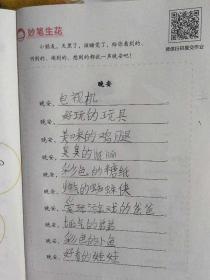 妙笔生花
微信扫码提交作业
小朋友，天黑了，该睡觉了，给你看到的、
听到的、闻到的、想到的都说一声晚安吧！
晚安
晚安，电视机
晚安，好玩的玩具
晚安，美味的鸡腿
晚安，臭臭的
晚安，彩色的糖纸
晚安，的蜘蛛侠
晚安，爱玩游戏的爸爸
晚安，的
晚安，彩色的
晚安，好看的娃娃